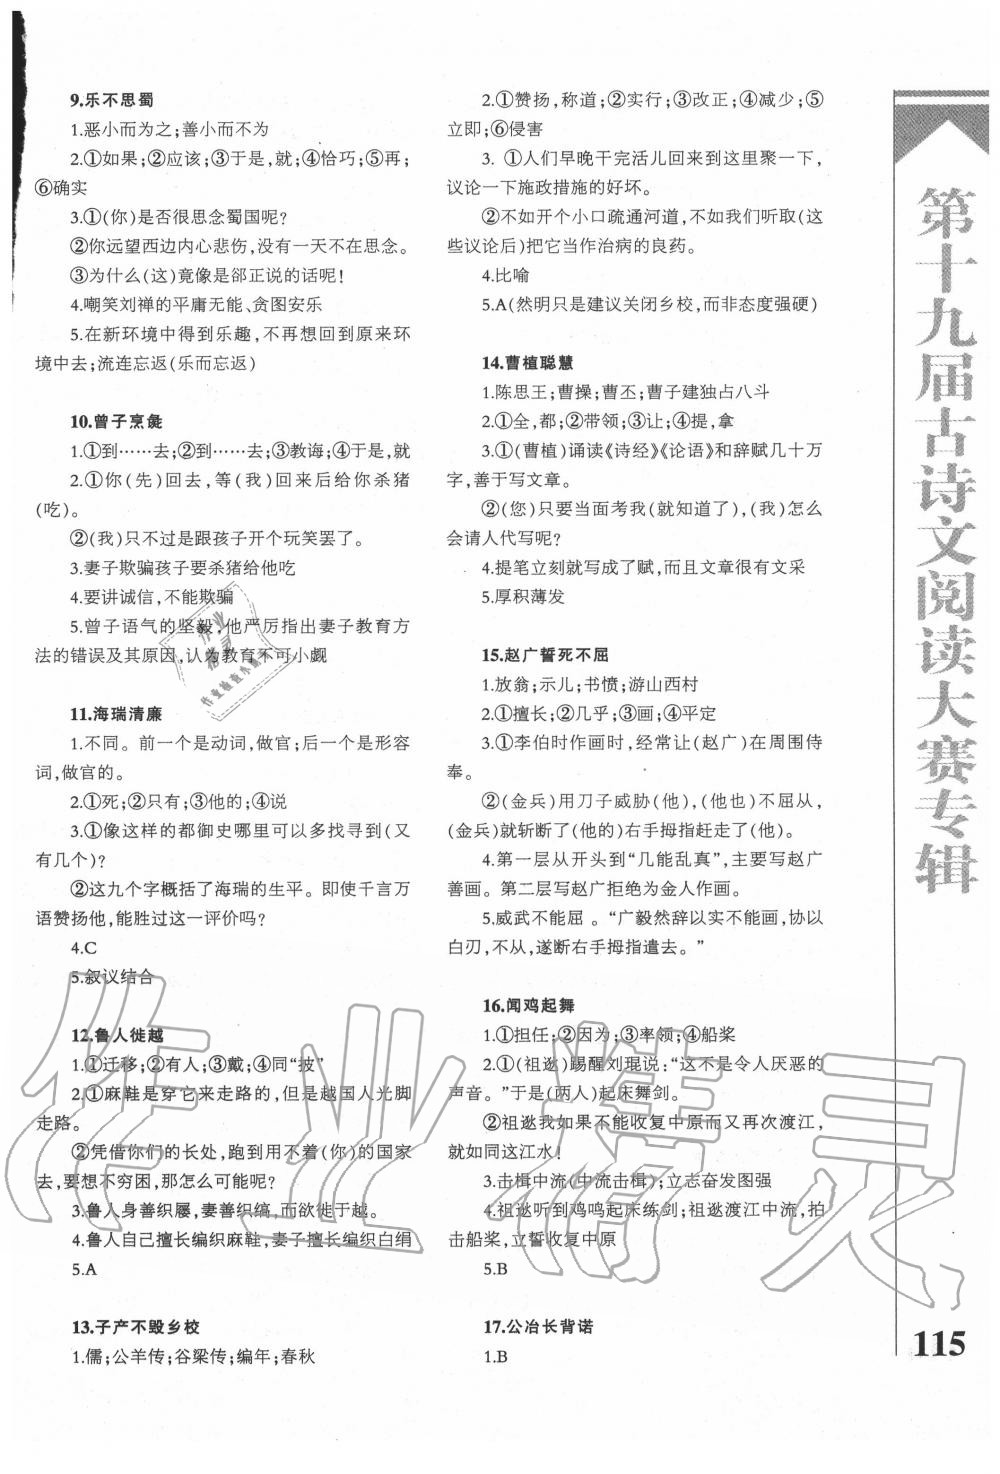 9.乐不思蜀
1.恶小而为之;善小而不为
2.①如果;②应该;③于是,就;④恰巧;⑤再;
⑥确实
3.①(你)是否很思念蜀国呢?
②你远望西边内心悲伤,没有一天不在思念。
③为什么(这)竟像是郤正说的话呢!
4.嘲笑刘禅的平庸无能、贪图安乐
5.在新环境中得到乐趣,不再想回到原来环
境中去;流连忘返(乐而忘返)
10.曾子烹彘
1.①到……去;②到……去;③教诲;④于是,就
2.①你(先)回去,等(我)回来后给你杀猪
(吃)。
②(我)只不过是跟孩子开个玩笑罢了。
3.妻子欺骗孩子要杀猪给他吃
4.要讲诚信,不能欺骗
5.曾子语气的坚毅,他严厉指出妻子教育方
法的错误及其原因,认为教育不可小觑
11.海瑞清廉
1.不同。前一个是动词,做官;后一个是形容
词,做官的。
2.①死;②只有;③他的;④说
3.①像这样的都御史哪里可以多找寻到(又
有几个)?
②这九个字概括了海瑞的生平。即使千言万
语赞扬他,能胜过这一评价吗?
4.C
5.叙议结合
12.鲁人徙越
1.①迁移;②有人;③戴;④同“披”
2.①麻鞋是穿它来走路的,但是越国人光脚
走路。
②凭借你们的长处,跑到用不着(你)的国家
去,要想不穷困,那怎么可能呢?
3.鲁人身善织屦,妻善织缟,而欲徙于越。
4.鲁人自己擅长编织麻鞋,妻子擅长编织白绢
5.A
13.子产不毁乡校
1.儒;公羊传;谷梁传;编年;春秋
2.①赞扬,称道;②实行;③改正;④减少;⑤
立即;⑥侵害
3. ①人们早晚干完活儿回来到这里聚一下,
议论一下施政措施的好坏。
②不如开个小口疏通河道,不如我们听取(这
些议论后)把它当作治病的良药。
4.比喻
5.A(然明只是建议关闭乡校,而非态度强硬)
14.曹植聪慧
1.陈思王;曹操;曹丕;曹子建独占八斗
2.①全,都;②带领;③让;④提,拿
3.①(曹植)诵读《诗经》《论语》和辞赋几十万
字,善于写文章。
②(您)只要当面考我(就知道了),(我)怎么
会请人代写呢?
4.提笔立刻就写成了赋,而且文章很有文采
5.厚积薄发
15.赵广誓死不屈
1.放翁;示儿;书愤;游山西村
2.①擅长;②几乎;③画;④平定
3.①李伯时作画时,经常让(赵广)在周围侍
奉。
②(金兵)用刀子威胁(他),(他也)不作画,
(金兵)就斩断了(他的)右手拇指赶走了(他)。
4.第一层从开头到“几能乱真”,主要写赵广
善画。第二层写赵广拒绝为金人作画。
5.威武不能屈 。“广毅然辞以实不能画,胁以
白刃,不从,遂断右手拇指遣去。”
16.闻鸡起舞
1.①担任;②因为;③率领;④船桨
2.①(祖逖)踢醒刘琨说:“这不是令人厌恶的
声音。”于是(两人)起床舞剑。
②祖逖我如果不能收复中原而又再次渡江,
就如同这江水!
3.击楫中流(中流击楫);立志奋发图强
4.祖逖听到鸡鸣起床练剑;祖逖渡江中流,拍
击船桨,立誓收复中原
5.B
17.公冶长背诺
1.B
第十九届古诗文阅读大赛专辑
115
作业精灵